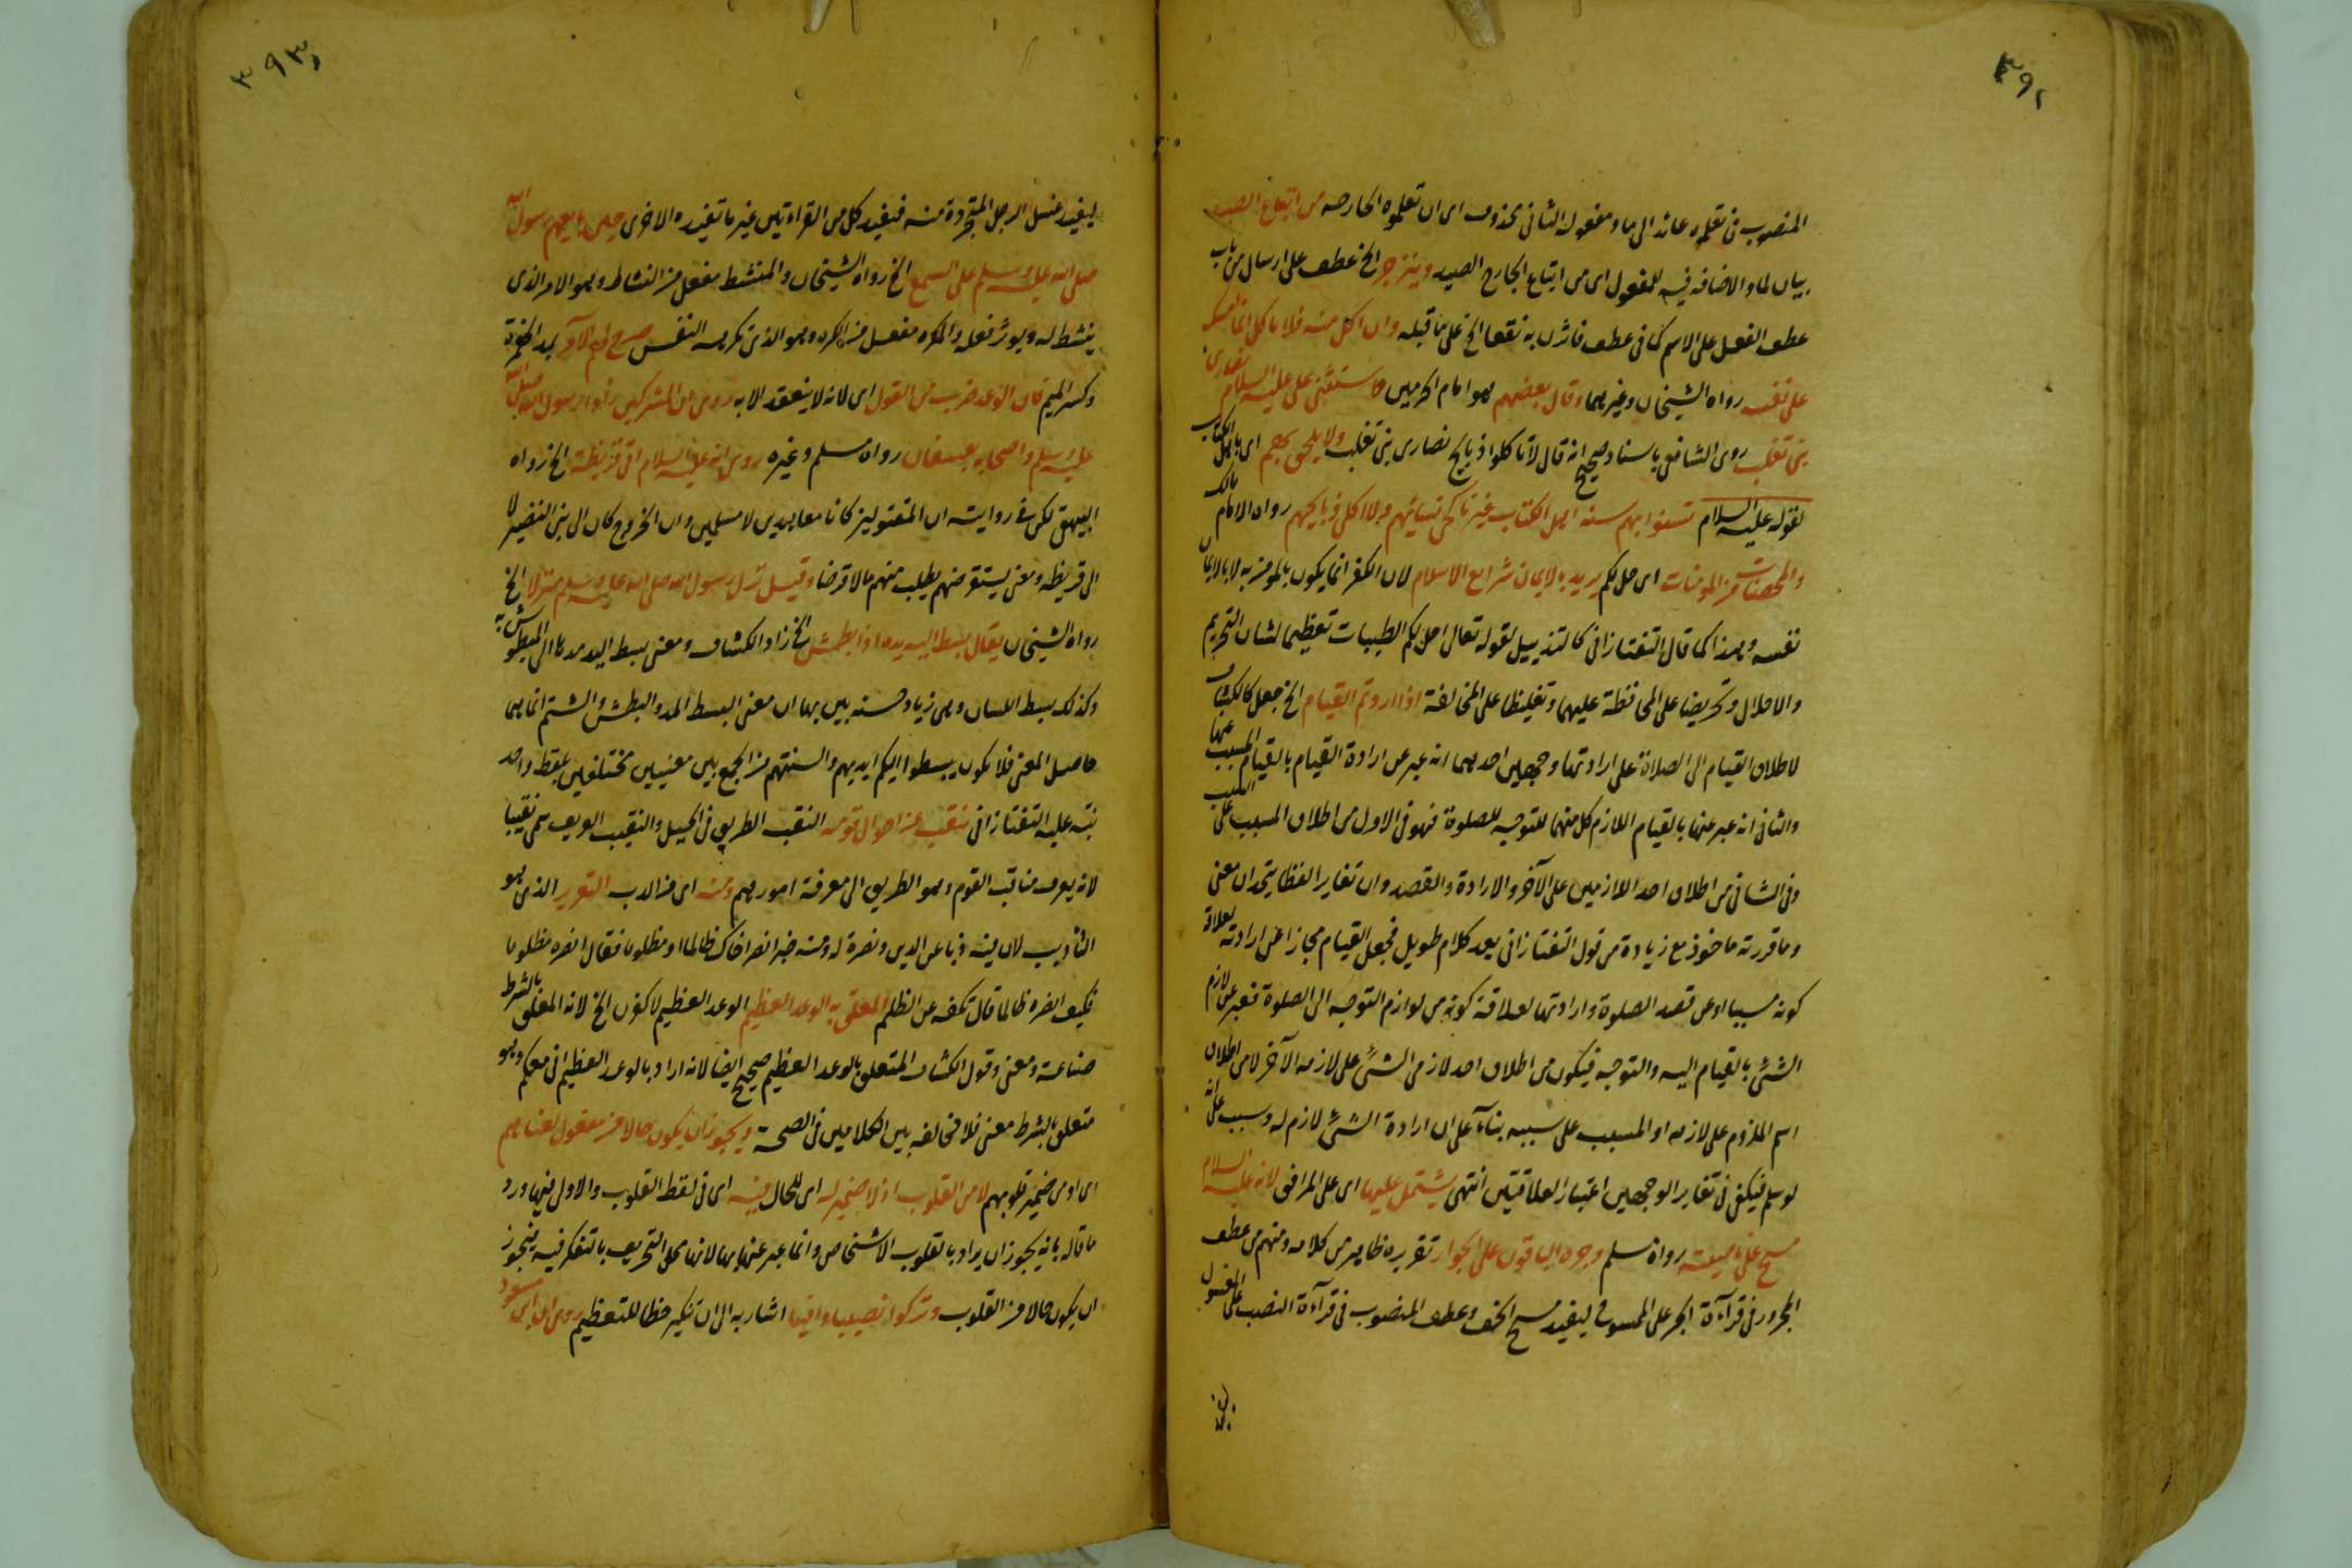 ٣٩٢
المنصوب فى تعلموه عائد الى ما ومفعوله الثانى محذوف اى ان تعلموه الجارحه من اتباع الصيد
بيان لما والاضافه فيه للمفعول اى من اتباع الجارح الصيد وينزجر الخ عطف على ارسال من باب
عطف الفعل على الاسم كما فى عطف فاثرن به نقعا الخ على ما قبله وان اكل منه فلا تاكل انما امسك
على نفسه رواه الشيخان وغيرهما وقال بعضهم هو امام الحرمين واستثنى على عليه السلام نصارى
بنى تغلب روى الشافعى باسناد صحيح انه قال لا تاكلوا ذبايح نصارى بنى تغلب ولا يلحق بهم اى باهل الكتاب
لقوله عليه السلام سنوا بهم سنة اهل الكتاب غير ناكحى نسائهم ولا اكلى ذبايحهم رواه الامام مالك
والمحصنات من المومنات اى حل لكم يريد بالايمان شرايع الاسلام لان الكفر انما يكون بالمومن به لا بالايمان
نفسه وهذا كما قال التفتازانى كالتذييل لقوله تعالى احل لكم الطيبات تعظيما لشان التحريم
والاحلال وتحريضا على المحافظة عليهما وتغليظا على المخالفة اذا اردتم القيام الخ جعل كالكشاف
لاطلاق القيام الى الصلاة على ارادتها وجهين احدهما انه عبر عن ارادة القيام بالقيام المسبب عنها
والثانى انه عبر عنها بالقيام اللازم كل منهما للتوجه للصلوة فهو فى الاول من اطلاق المسبب على السبب
وفى الثانى من اطلاق احد اللازمين على الآخر والارادة والقصد وان تغاير الفظا يتحدان معنى
وما قررته ماخوذ مع زيادة من قول التفتازانى بعد كلام طويل فجعل القيام مجازا عن ارادته لعلاقة
كونه مسببا او عن قصد الصلوة وارادتها لعلاقة كونه من لوازم التوجه الى الصلوة فعبر عن لازم
الشئ بالقيام اليه والتوجه فيكون من اطلاق احد لازمى الشئ على لازمه الآخر لا من اطلاق
اسم الملزوم على لازمه او المسبب على سببه بناء على ان ارادة الشئ لازم له وسبب على انه
لو سلم فيكفى فى تغاير الوجهين اعتبار العلاقتين انتهى يشتمل عليها اى على المرافق لانه عليه السلام
مسح على ناصيته رواه مسلم وجره الباقون على الجوار تقريره ظاهر من كلامه ومنهم من عطف
المجرور فى قراءة الجر على الممسوح ليفيد مسح الخف وعطف المنصوب فى قراءة النصب على المغسول
٣٩٣
ليفيد غسل الرجل المتجردة منه فيفيد كل من القراءتين غير ما تفيده الاخرى حين بايعهم رسول الله
صلى الله عليه وسلم على السمع الخ رواه الشيخان والمنشط مفعل من النشاط وهو الامر الذى
ينشط له ويوثر فعله والمكره مفعل من الكره وهو الذى تكرهه النفس
وكسر الميم فان الوعد ضرب من القول اى لانه لا ينعقد الا به روى ان المشركين راوا رسول الله صلى الله
عليه وسلم واصحابه بعسفان رواه مسلم وغيره روى انه عليه السلام اتى قريظة الخ رواه
البيهقى لكن فى روايته ان المقتولين كانا معاهدين لا مسلمين وان الخروج كان الى بنى النضير لا
الى قريظه ومعنى يستقرضهم يطلب منهم مالا قرضا وقيل نزل رسول الله صلى الله عليه وسلم منزلا الخ
رواه الشيخان يقال بسط اليه يده اذا بطش الخ زاد الكشاف ومعنى بسط اليد مدها الى المبطوش به
وكذلك بسط اللسان وهى زيادة حسنه بين بها ان معنى البسط المد والبطش والشتم انما هما
حاصل المعنى فلا يكون يبسطوا اليكم ايديهم والسنتهم من الجمع بين معنيين مختلفين بلفظ واحد
نبه عليه التفتازانى ينقب عن احوال قومه النقب الطريق فى الجبل والنقيب العريف سمى نقيبا
لانه يعرف مناقب القوم وهو الطريق الى معرفة امورهم ومنه اى من الذب التعزير الذى هو
التاديب لان فيه ذبا عن الدين ونصرة له ومنه خبر انصر اخاك ظالما او مظلوما فقال انصره مظلوما
فكيف انصره ظالما قال تكفه عن الظلم المعلق به الوعد العظيم الوعد العظيم لاكفرن الخ لانه المعلق بالشرط
صناعة ومعنى وقول الكشاف المتعلق بالوعد العظيم صحيح ايضا لانه اراد بالوعد العظيم انى معكم وهو
متعلق بالشرط معنى فلا مخالفه بين الكلامين فى الصحة ويجوز ان يكون حالا من مفعول لعناهم
اى او من ضمير قلوبهم لا من القلوب اذ لا ضمير له اى للحال فيه اى فى لفظ القلوب والاول فيهما ورد
ما قاله بانه يجوز ان يراد بالقلوب الاشخاص وانما عبر عنها بها لانها محل التحريف بالتفكر فيه فيجوز
ان يكون حالا من القلوب وتركوا نصيبا وافيا اشار به الى ان تنكير حظا للتعظيم روى ابن مسعود